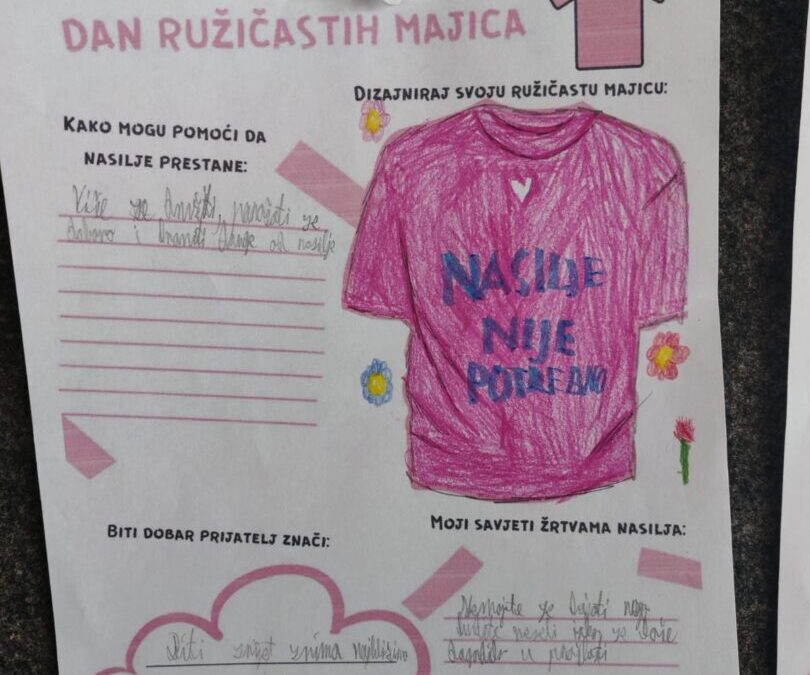 DAN RUŽIČASTIH MAJICA
DIZAJNIRAJ SVOJU RUŽIČASTU MAJICU:
KAKO MOGU POMOĆI DA
NASILJE PRESTANE:
Više se družiti, ponašati se
dobro i braniti druge od nasilje
NASILJE
NIJE
POTREBNO
BITI DOBAR PRIJATELJ ZNAČI:
Biti uvijet s njima
MOJI SAVJETI ŽRTVAMA NASILJA:
Nemojte se bojati nego
budite veseli
u prošlosti